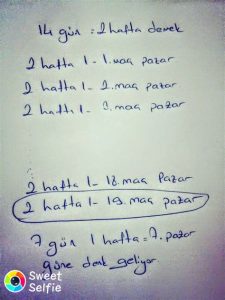 14 gün = 2 hafta demek
2 hafta 1 - 1. maç pazar
2 hafta 1 - 2. maç pazar
2 hafta 1 - 3. maç pazar
2 hafta 1 - 18. maç Pazar
2 hafta 1 - 19. maç pazar
7 gün 1 hafta = 7. pazar
güne denk geliyor
Sweet
Selfie